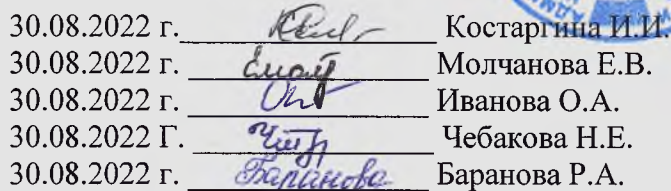 30.08.2022 г. Костаргина И.И.
30.08.2022 г. Молчанова Е.В.
30.08.2022 г. Иванова О.А.
30.08.2022 Г. Чебакова Н.Е.
30.08.2022 г. Баранова Баранова Р.А.